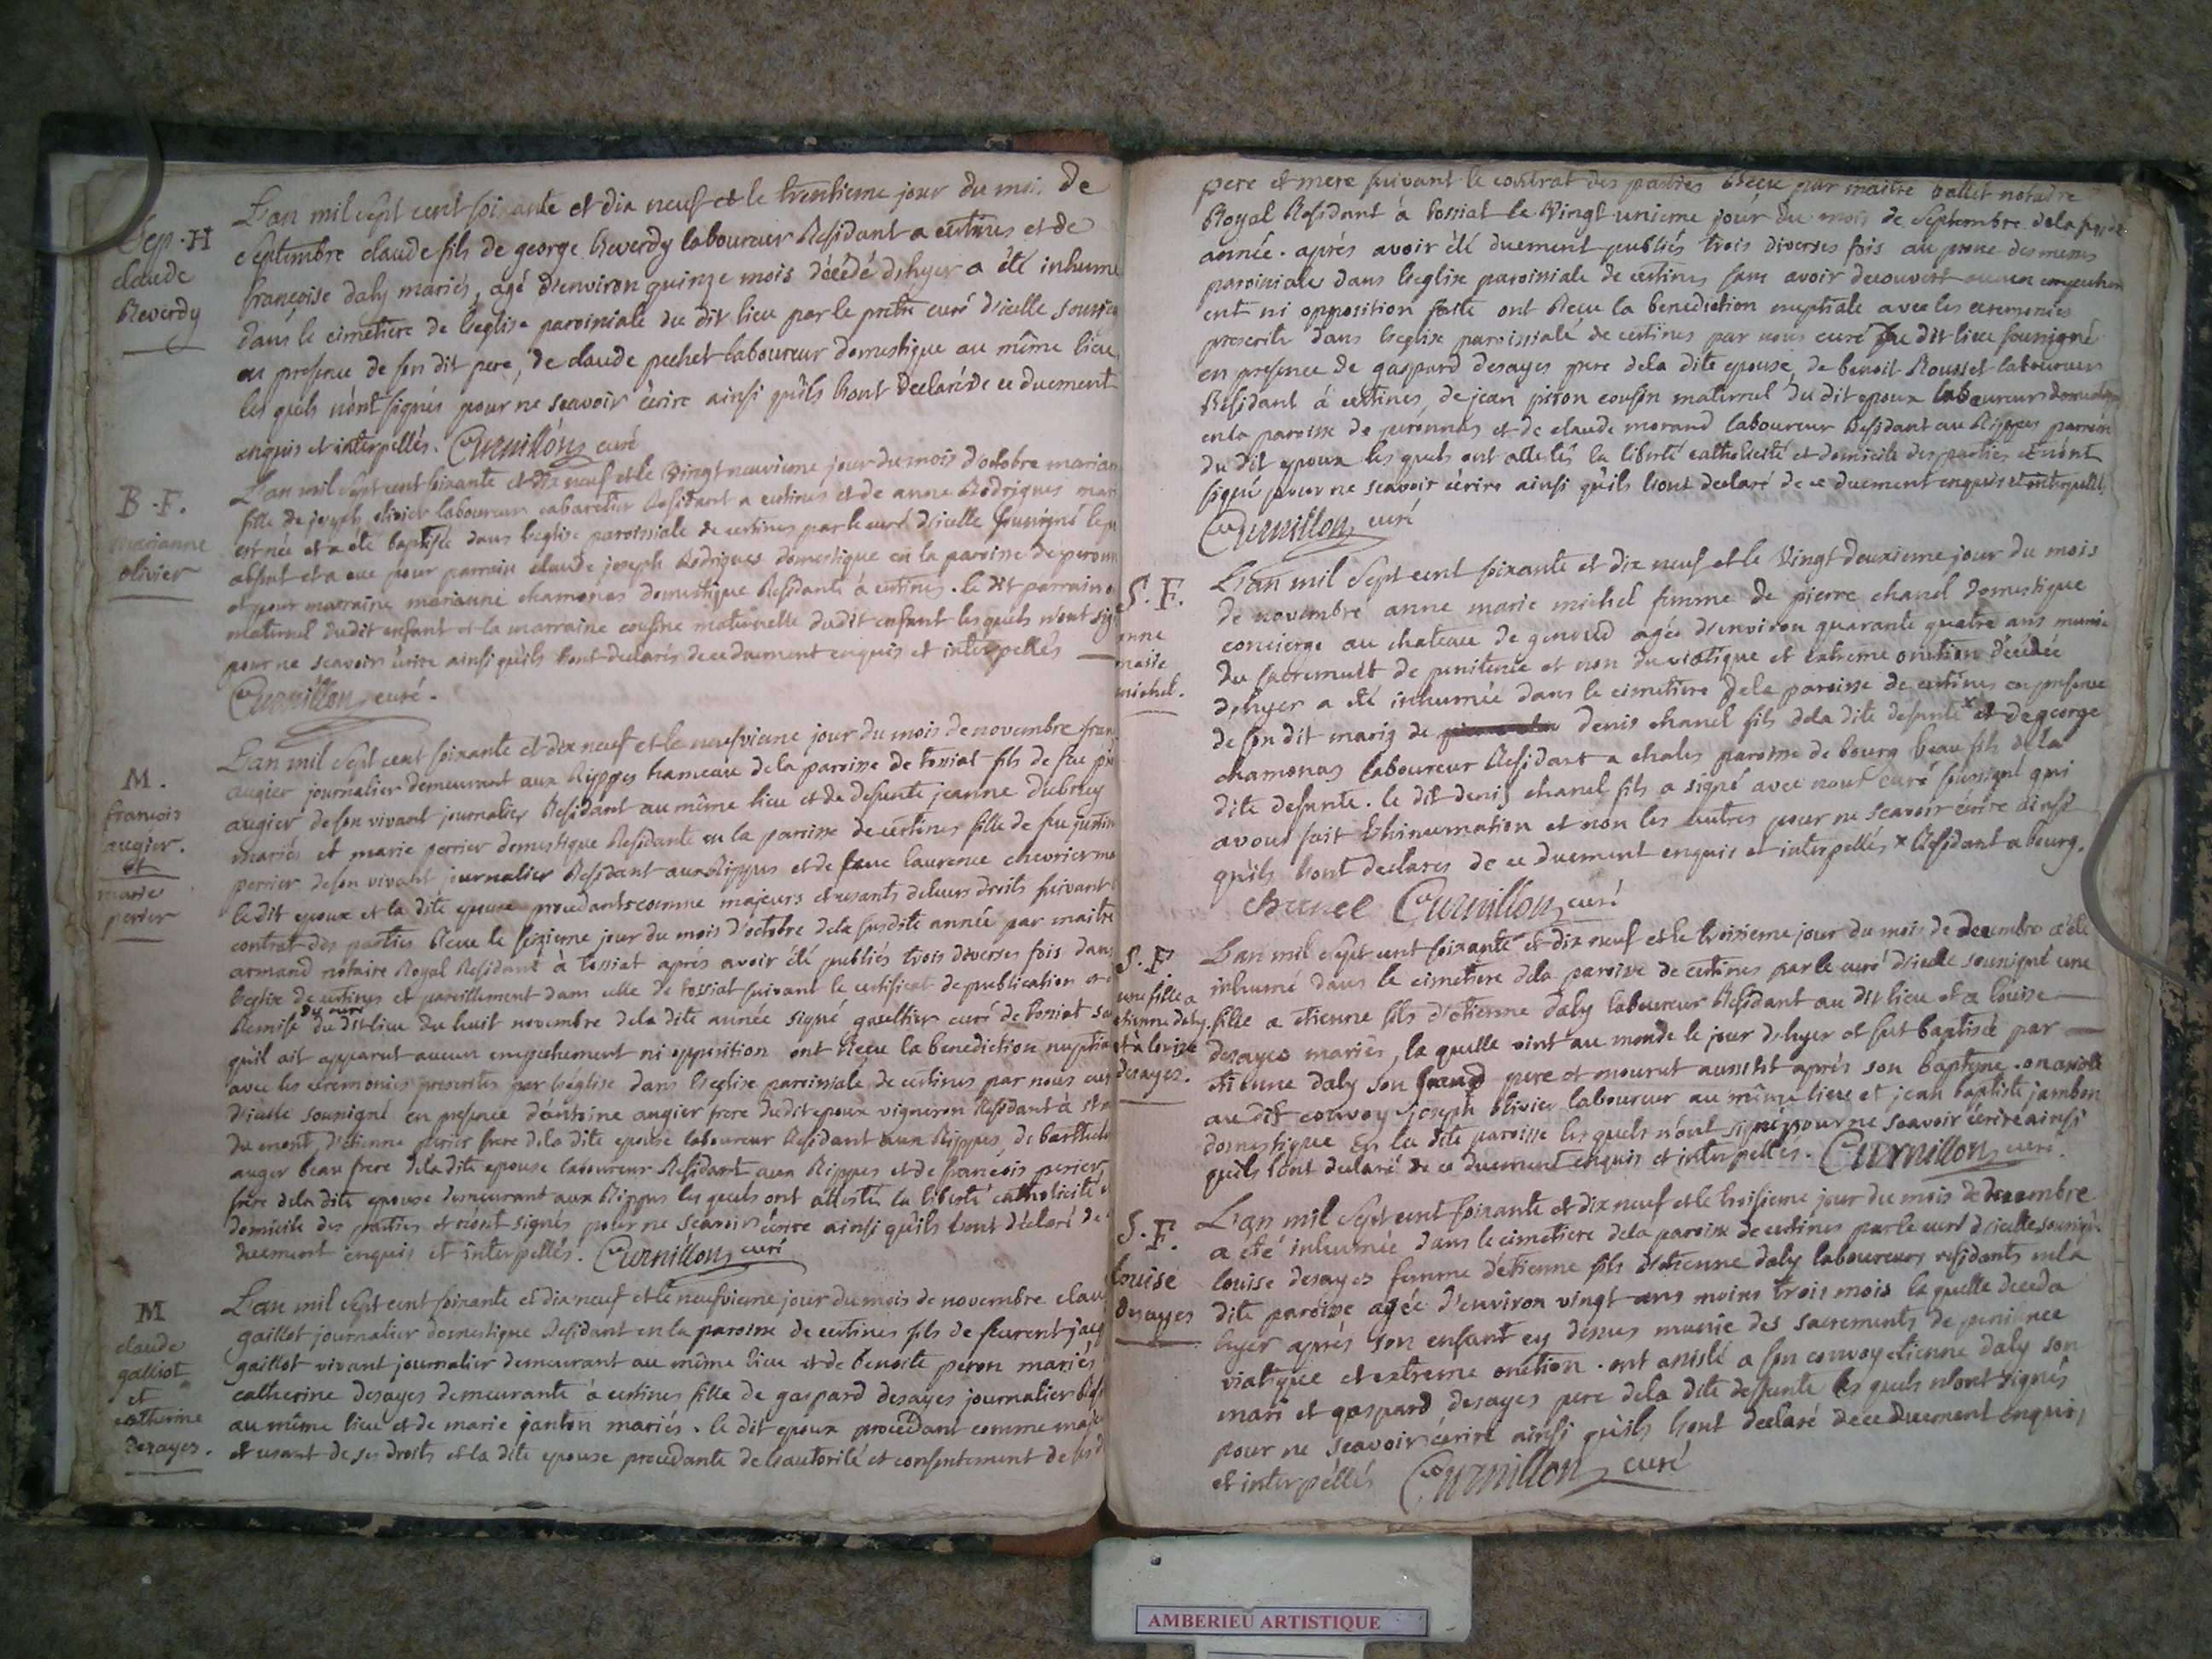 Sep. H
claude
Reverdy
L'an mil sept cent soixante et dix neuf et le trentieme jour du mois de
septembre claude fils de george Reverdy laboureur Residant a certines et de
françoise daly mariés, agé d'environ quinze mois décédé d'hyer a été inhumé
dans le cimetiere de l'eglise paroissiale du dit lieu par le pretre curé d'icelle
en presence de son dit pere, de claude pechet laboureur domestique au même lieu
les quels n'ont signés pour ne sçavoir écrire ainsi qu'ils l'ont declaré de ce duement
enquis et interpellés. Curnillon curé
B. F.
marianne
olivier
L'an mil sept cent soixante et dix neuf et le vingt neuvieme jour du mois d'octobre marian
fille de joseph olivier laboureur cabaretier Residant a certines et de anne Rodrigues mar
est née et a été baptisée dans l'eglise paroissiale de certines par le curé d'icelle sousigné le p
absent et a eue pour parrain claude joseph Rodrigues domestique en la paroisse de peronn
et pour marraine marianne chamonas domestique Residante à certines. le dit parrain o
maternel dudit enfant et la marraine cousine maternelle dudit enfant lesquels n'ont sig
pour ne sçavoir écrire ainsi qu'ils l'ont declarés de ce duement enquis et interpellés
Curnillon curé.
M.
francois
augier.
et
marie
perier
L'an mil sept cent soixante et dix neuf et le neufvieme jour du mois de novembre fran
augier journalier demeurant aux Rippes hameau de la paroisse de tossiat fils de feu pi
augier de son vivant journalier Residant au même lieu et de defunte jeanne
mariés et marie perrier domestique Residante en la paroisse de certines fille de feu
perrier de son vivant journalier Residant aux Rippes et de feue laurence chevrier ma
le dit epoux et la dite epouse procedants comme majeurs et usants de leurs droits suivant l
contrat des parties Reçue le seizieme jour du mois d'octobre de la susdite année par maitre
armand notaire Royal Residant à tossiat après avoir été publiés trois diverses fois dans
l'eglise de certines et pareillement dans celle de tossiat suivant le certificat de publication
Remise du curé du dit lieu du huit novembre de la dite année signé gaulthier curé de tossiat
qu'il ait apparut aucun empechement ni opposition ont Reçue la benediction nuptia
avec les ceremonies prescrites par l'église dans l'eglise paroissiale de certines par nous cur
d'icelle sousigné en presence d'antoine augier frere du dit epoux vigneron Residant à st m
du mont, d'etienne perier frere de la dite epouse laboureur Residant aux Rippes, de barthele
auger beau frere de la dite epouse laboureur Residant aux Rippes et de francois perier
frere de la dite epouse demeurant aux Rippes les quels ont attestés la liberté catholicité e
domicile des parties et n'ont signés pour ne sçavoir écrire ainsi qu'ils l'ont déclaré de
duement enquis et interpellés. Curnillon curé
M
claude
galliot
et
catherine
desayes.
L'an mil sept cent soixante et dix neuf et le neufvieme jour du mois de novembre clau
gaillot journalier domestique Residant en la paroisse de certines fils de
gaillot vivant journalier demeurant au même lieu et de benoite peron mariés
catherine desayes demeurante à certines fille de gaspard desayes journalier
au même lieu et de marie janton mariés. le dit epoux procedant comme maje
et usant de ses droits et la dite epouse procedante de l'autorité et consentement de
pere et mere suivant le contrat des parties Reçue par maitre vallet notaire
Royal Residant à tossiat le vingt unieme jour du mois de septembre de la
année. après avoir été duement publiés trois diverses fois au prone des messes
paroissiales dans l'eglise paroissiale de certines sans avoir decouvert aucun empechem
ent ni opposition faite ont Reçue la benediction nuptiale avec les ceremonies
prescrite dans l'eglise paroissiale de certines par nous curé du dit lieu sousigné
en presence de gaspard desayes pere de la dite epouse, de benoit Rousset laboureur
Residant à certines, de jean piron cousin maternel du dit epoux laboureur
en la paroisse de peronnas et de claude morand laboureur Residant au Rippes parrain
du dit epoux les quels ont attestés la liberté catholicité et domicile des parties et n'ont
signé pour ne sçavoir écrire ainsi qu'ils l'ont declaré de ce duement enquis et interpellés
Curnillon curé
S. F.
anne
marie
michel.
L'an mil sept cent soixante et dix neuf et le vingt deuxieme jour du mois
de novembre anne marie michel femme de pierre chanel domestique
concierge au chateau de genoud agée d'environ quarante quatre ans munie
du sacrement de penitence et non du viatique et extreme onction décédée
d'hyer a été inhumée dans le cimetiere de la paroisse de certines en presence
de son dit mary de denis chanel fils de la dite defunte x et de george
chamonas laboureur Residant a chales paroisse de bourg beau fils de la
dite defunte. le dit denis chanel fils a signé avec nous curé sousigné qui
avons fait l'hinumation et non les autres pour ne sçavoir écrire ainsi
qu'ils l'ont declarés de ce duement enquis et interpellés x Residant a bourg.
chanel Curnillon curé
S. F.
une fille a
etienne daly
et à louise
desayes.
L'an mil sept cent soixante et dix neuf et le troisieme jour du mois de decembre a été
inhumé dans le cimetiere de la paroisse de certines par le curé d'icelle sousigné une
fille a etienne fils d'etienne daly laboureur Residant au dit lieu et a louise
desayes mariés, la quelle vint au monde le jour d'hyer et fut baptisée par
etienne daly son grand pere et mourut aussitôt après son baptême. on assisté
au dit convoy joseph olivier laboureur au même lieu et jean baptiste jambon
domestique en la dite paroisse les quels n'ont signés pour ne sçavoir écrire ainsi
qu'ils l'ont declaré de ce duement enquis et interpellés. Curnillon curé.
S. F.
louise
desayes
L'an mil sept cent soixante et dix neuf et le troisieme jour du mois de decembre
a été inhumée dans le cimetiere de la paroisse de certines par le curé d'icelle sousigné
louise desayes femme d'étienne fils d'etienne daly laboureurs residants en la
dite paroisse agée d'environ vingt ans moins trois mois la quelle deceda
hyer après son enfant cy dessus munie des sacrements de penitence
viatique et extreme onction. ont assisté a son convoy etienne daly son
mari et gaspard desayes pere de la dite deffunte les quels n'ont signés
pour ne sçavoir écrire ainsi qu'ils l'ont declaré de ce duement enquis
et interpéllés Curnillon curé
AMBERIEU ARTISTIQUE